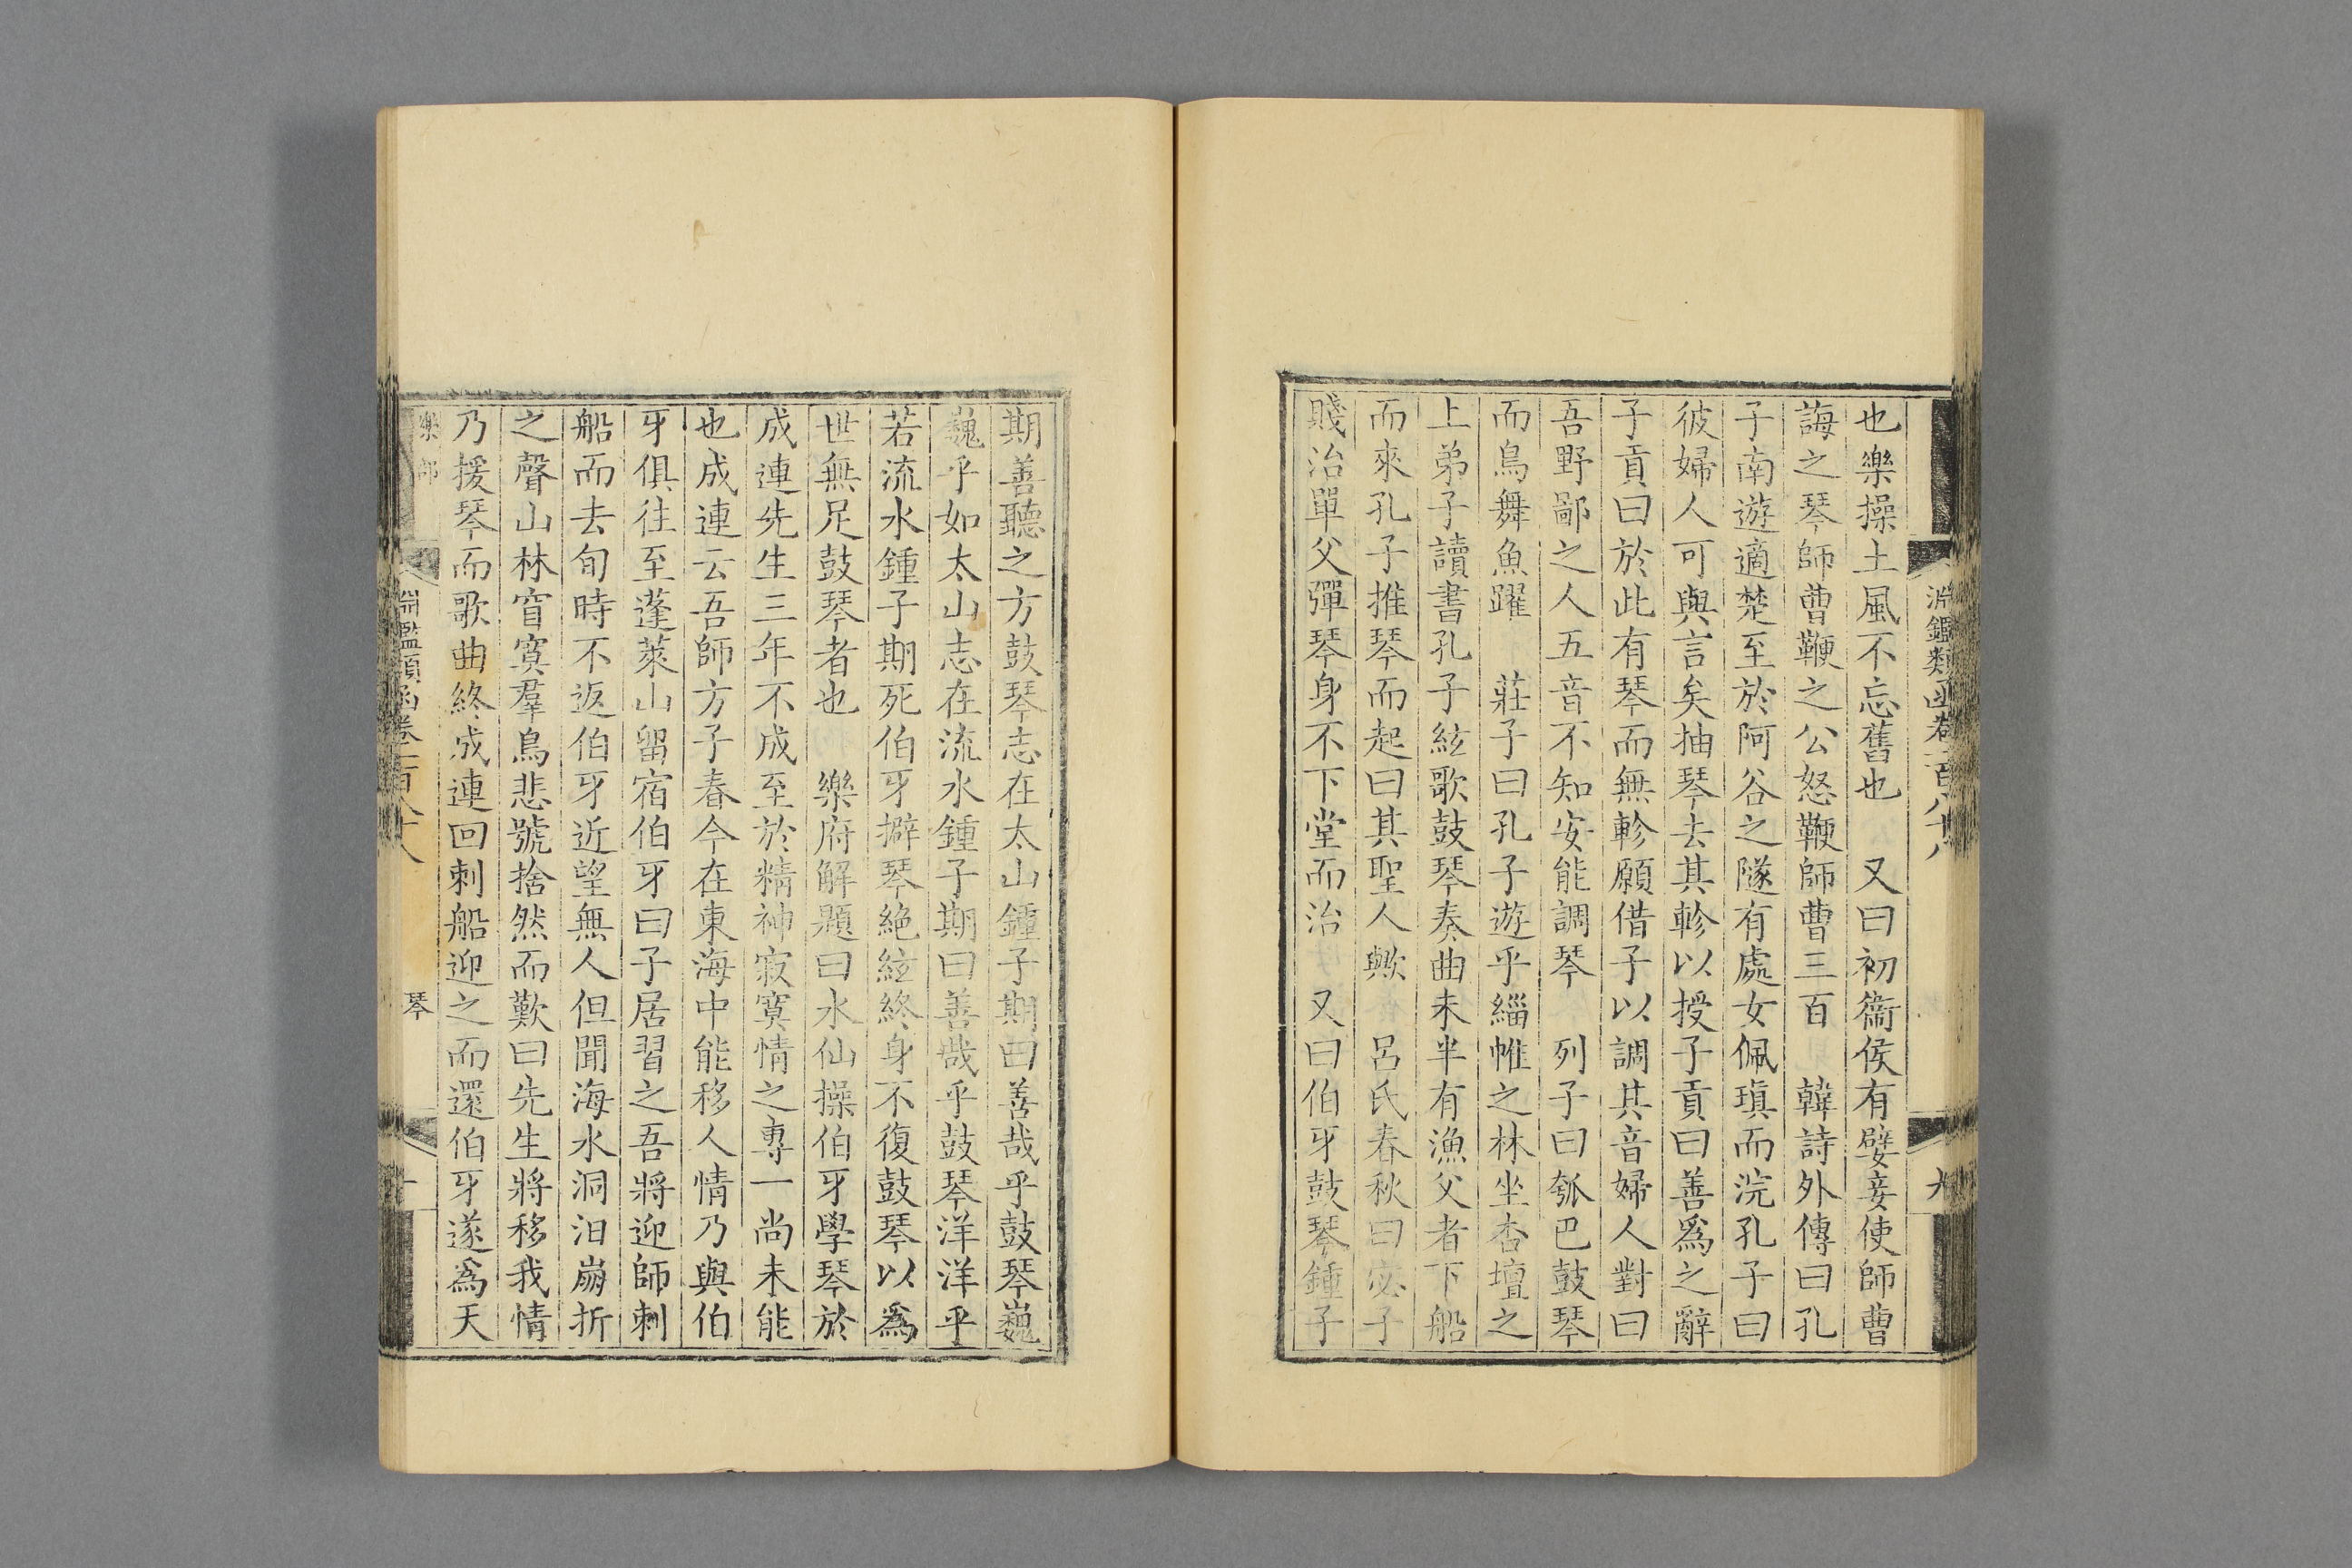 淵鑑類函卷一百八十八
九
也樂操土風不忘舊也　又曰初衞侯有嬖妾使師曹
誨之琴師曹鞭之公怒鞭師曹三百　韓詩外傳曰孔
子南遊適楚至於阿谷之隧有處女佩瑱而浣孔子曰
彼婦人可與言矣抽琴去其軫以授子貢曰善爲之辭
子貢曰於此有琴而無軫願借子以調其音婦人對曰
吾野鄙之人五音不知安能調琴　列子曰瓠巴鼓琴
而鳥舞魚躍　莊子曰孔子遊乎緇帷之林坐杏壇之
上弟子讀書孔子絃歌鼓琴奏曲未半有漁父者下船
而來孔子推琴而起曰其聖人歟　呂氏春秋曰宓子
賤治單父彈琴身不下堂而治　又曰伯牙鼓琴鍾子
期善聽之方鼓琴志在太山鍾子期曰善哉乎鼓琴巍
巍乎如太山志在流水鍾子期曰善哉乎鼓琴洋洋乎
若流水鍾子期死伯牙擗琴絶絃終身不復鼓琴以爲
世無足鼓琴者也　樂府解題曰水仙操伯牙學琴於
成連先生三年不成至於精神寂寞情之專一尚未能
也成連云吾師方子春今在東海中能移人情乃與伯
牙俱往至蓬萊山留宿伯牙曰子居習之吾將迎師刺
船而去旬時不返伯牙近望無人但聞海水洞汨崩折
之聲山林窅寞羣鳥悲號愴然而歎曰先生將移我情
乃援琴而歌曲終成連回刺船迎之而還伯牙遂爲天
樂部
淵鑑類函卷一百八十八
琴
十